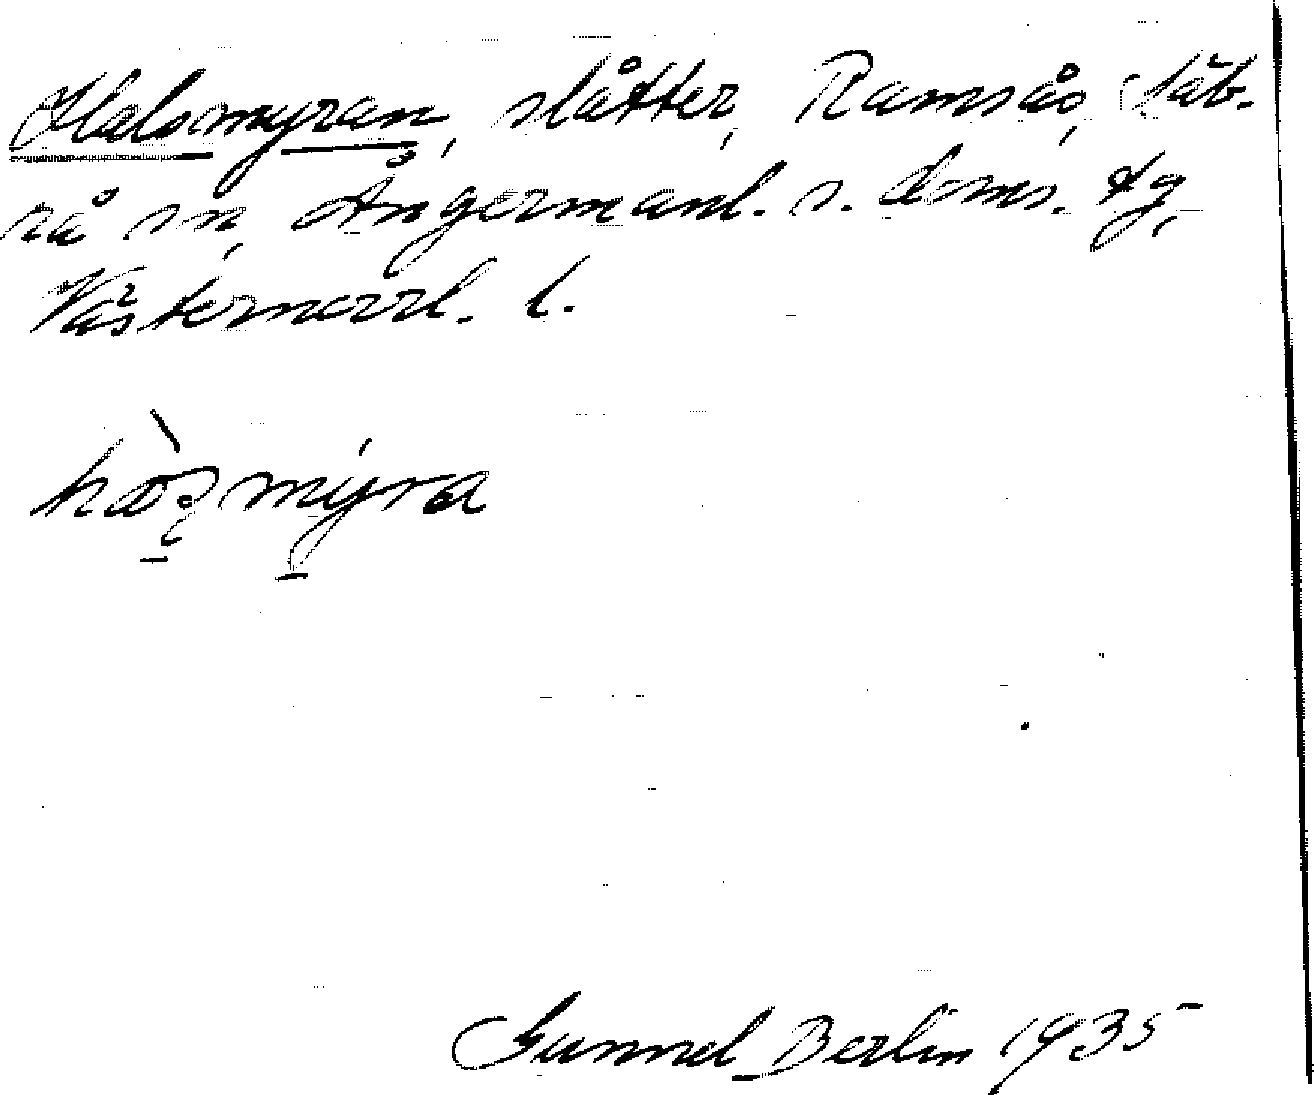 Halsmyran, slåtter, Ramsås, Säb-
rå sn, Ångermanl. s. doms. tg,
Västernorrl. l.
Gunnel Berlin 1935